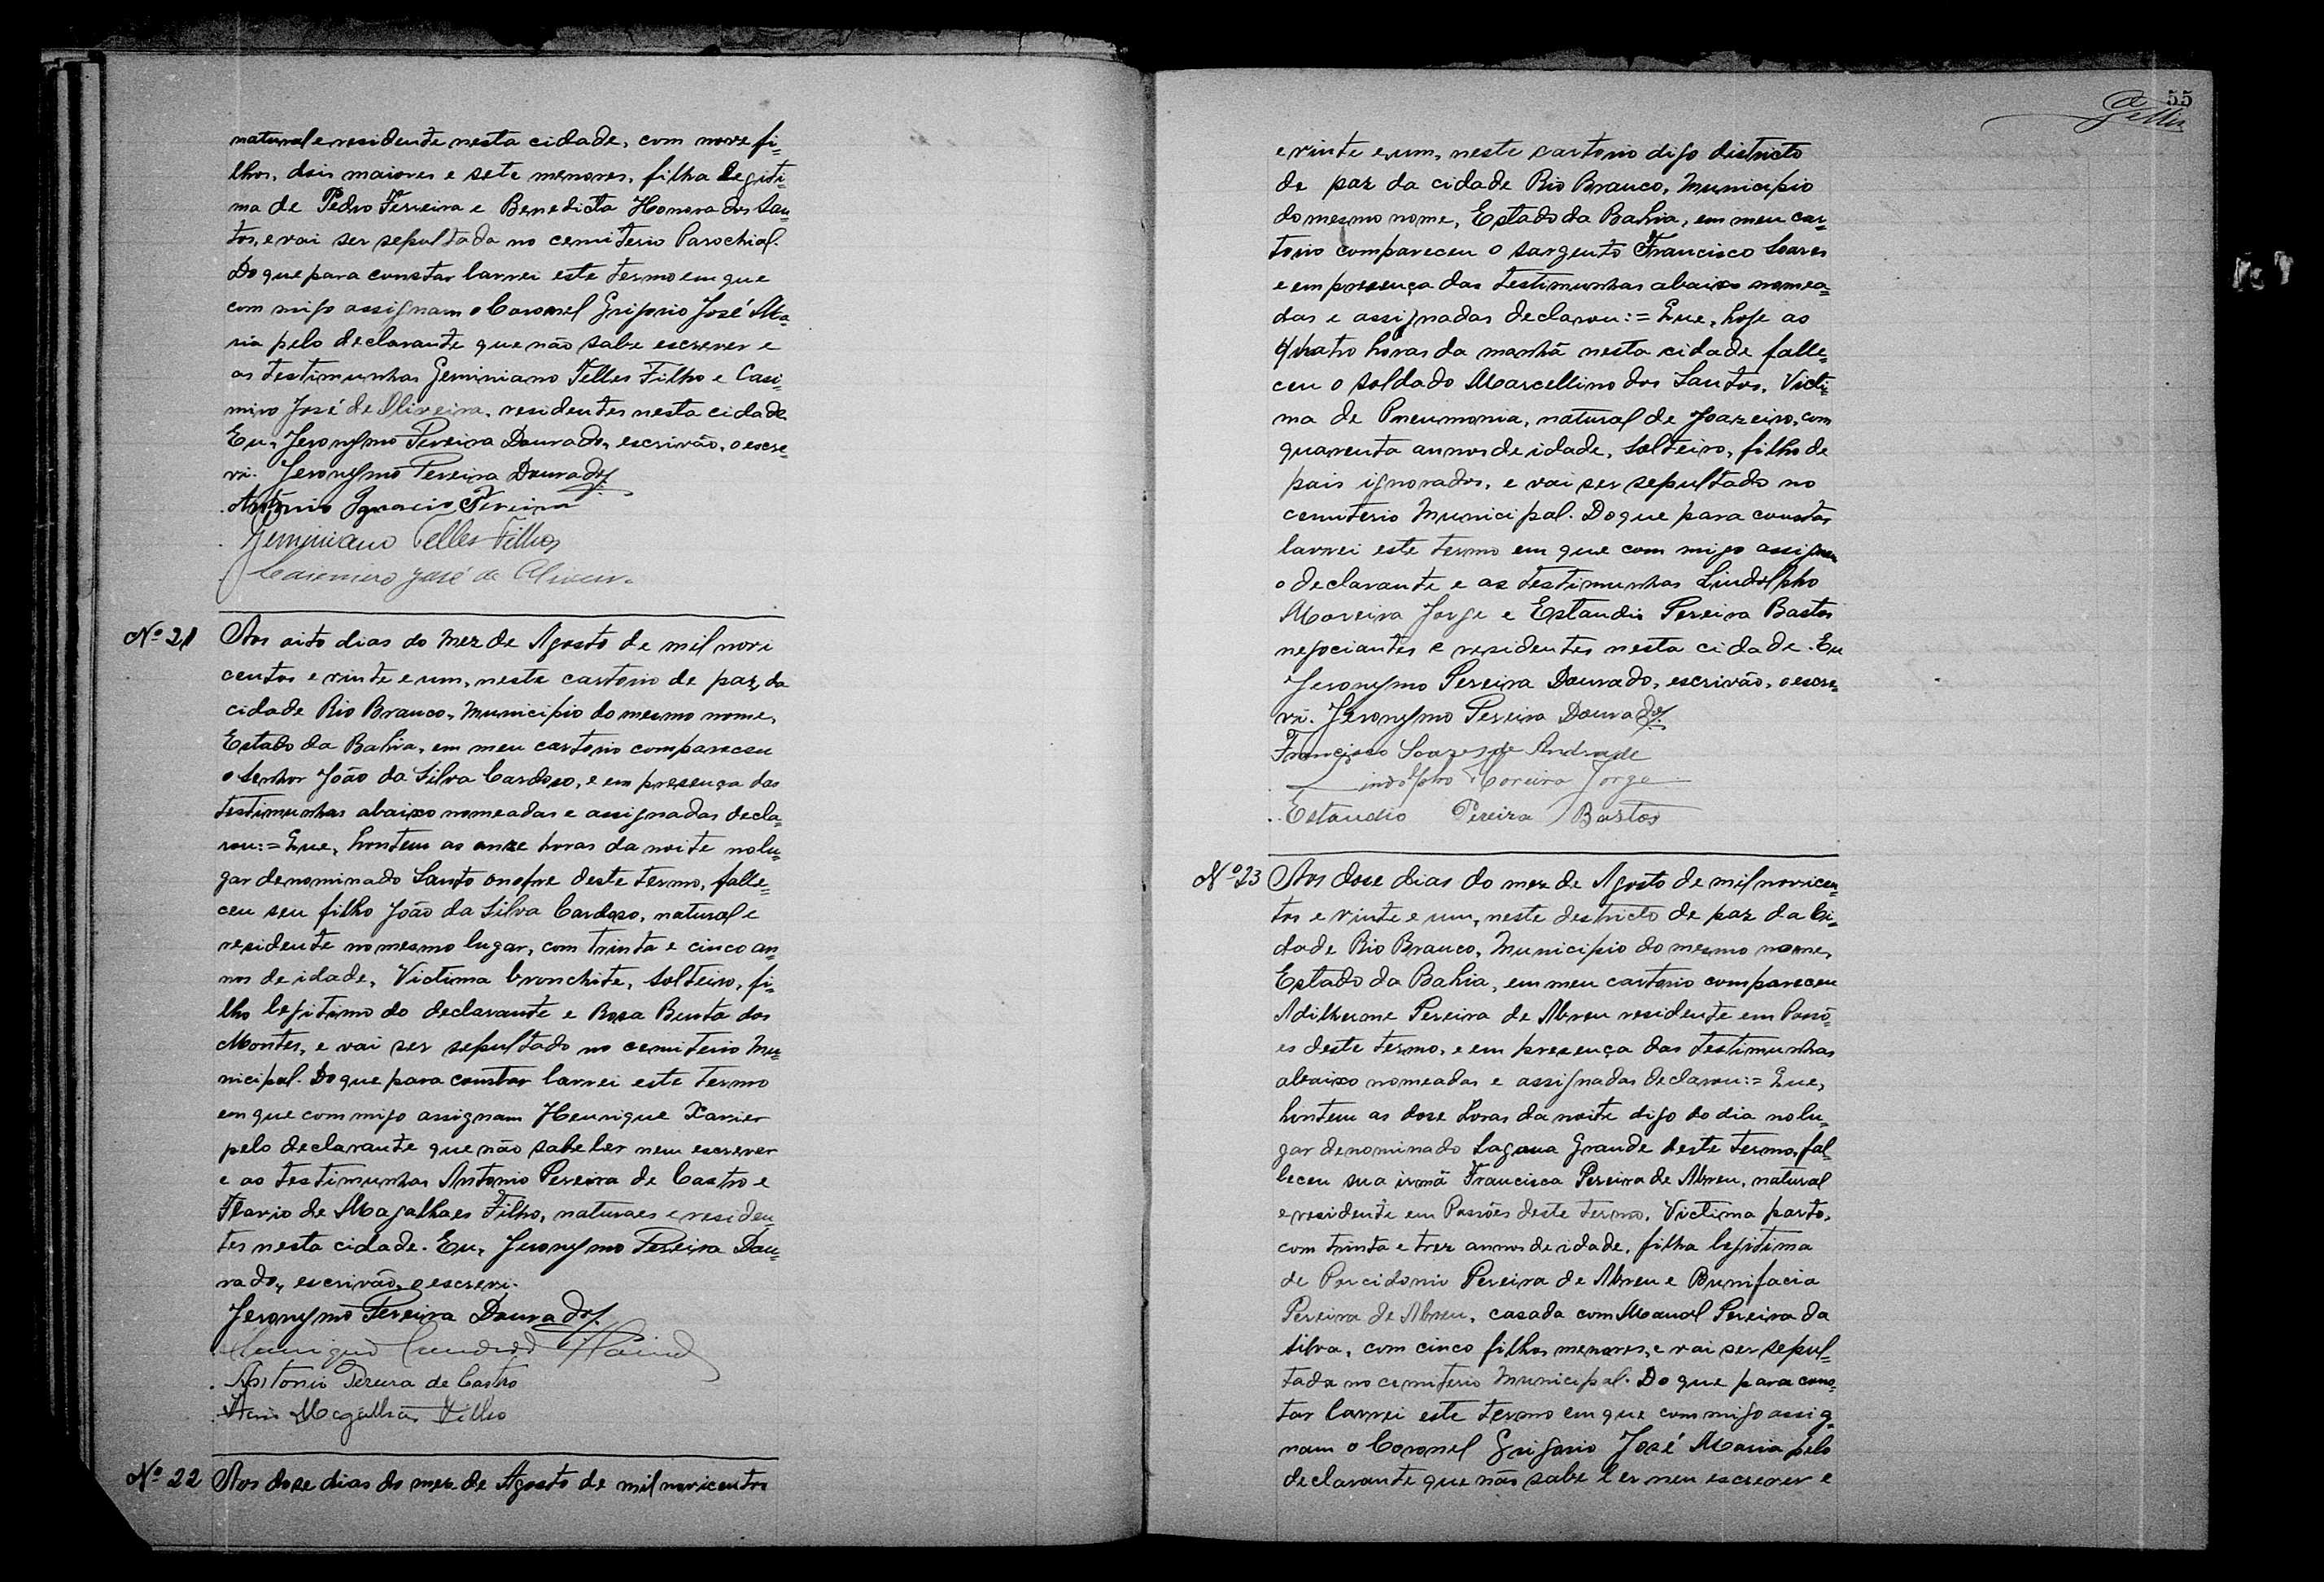 natural e residente nesta cidade, com nove fi=
lhos, dois maiores e sete menores, filha legiti=
ma de Pedro Ferreira e Benedicta Honora dos San=
tos, e vai ser sepultada no cemiterio Parochial.
Do que para constar lavrei este termo em que
com migo assignam o Coronel Grigorio José Ma=
ria pelo declarante que não sabe escrever e
as testimunhas Geminiano Telles Filho e Casi=
miro José de Oliveira, residentes nesta cidade.
Eu, Jeronymo Pereira Dourado, escrivão, o escre=
vi. Jeronymo Pereira Dourado.
Antonio Ignacio Pereira
Geminiano Telles Filho
Casemiro José de Oliveira
Nº 21 Aos oito dias do mez de Agosto de mil novi
centos e vinte e um, neste cartorio de paz, da
cidade Rio Branco, Municipio do mesmo nome,
Estado da Bahia, em meu cartorio compareceu
o Senhor João da Silva Cardoso, e em presença das
testimunhas abaixo nomeadas e assignadas decla=
rou:= Que, hontem as onze horas da noite no lu=
gar denominado Santo onofre deste termo, falle=
ceu seu filho João da Silva Cardoso, natural e
residente no mesmo lugar, com trinta e cinco an=
nos de idade, Victima bronchite, solteiro, fi=
lho legitimo do declarante e Rosa Benta dos
Montes, e vai ser sepultado no cemiterio Mu=
nicipal. Do que para constar lavrei este termo
em que com migo assignam Henrique Xavier
pelo declarante que não sabe ler nem escrever
e as testimunhas Antonio Pereira de Castro e
Flavio de Magalhaes Filho, naturaes e residen=
tes nesta cidade. Eu, Jeronymo Pereira Dou=
rado, escrivão, o escrevi.
Jeronymo Pereira Dourado.
Henrique
Antonio Pereira de Castro
Magalhães Filho
Nº 22 Aos dose dias do mez de Agosto de mil novicentos
55
e vinte e um, neste cartorio digo districto
de paz da cidade Rio Branco, Municipio
do mesmo nome, Estado da Bahia, em meu car=
torio compareceu o sargento Francisco Soares
e em presença das testimunhas abaixo nomea=
das e assignadas declarou:= Que, hoje as
quatro horas da manhã nesta cidade falle=
ceu o soldado Marcellino dos Santos, Victi=
ma de Pneumonia, natural de Joazeiro, com
quarenta annos de idade, Solteiro, filho de
pais ignorados, e vai ser sepultado no
cemiterio Municipal. Do que para constar
lavrei este termo em que com migo assignam
o declarante e as testimunhas Lindolpho
Moreira Jorge e Estaudio Pereira Bastos
negociantes e residentes nesta cidade. Eu
Jeronymo Pereira Dourado, escrivão, o escre=
vi. Jeronymo Pereira Dourado.
Francisco Soares de Andrade
Lindolpho Moreira Jorge
Estaudio Pereira Bastos
Nº 23 Aos dose dias do mez de Agosto de mil novicen=
tos e vinte e um, neste destricto de paz da Ci=
dade Rio Branco, Municipio do mesmo nome,
Estado da Bahia, em meu cartorio compareceu
Adilherme Pereira de Abreu residente em Passõ=
es deste termo, e em presença das testimunhas
abaixo nomeadas e assignadas declarou:= Que,
hontem as dose horas da noite digo do dia no lu=
gar denominado Lagoua Grande deste termo, fal=
leceu sua irmã Francisca Pereira de Abreu, natural
e residente em Passões deste termo, Victima parto,
com trinta e trez annos de idade, filha legitima
de Porcidonio Pereira de Abreu e Bunifacia
Pereira de Abreu, casada com Manoel Pereira da
Silva, com cinco filhos menores, e vai ser sepul=
tada no cemiterio Municipal. Do que para cons=
tar lavrei este termo em que com migo assig=
nam o Coronel Grigorio José Maria pelo
declarante que não sabe ler nem escrever e